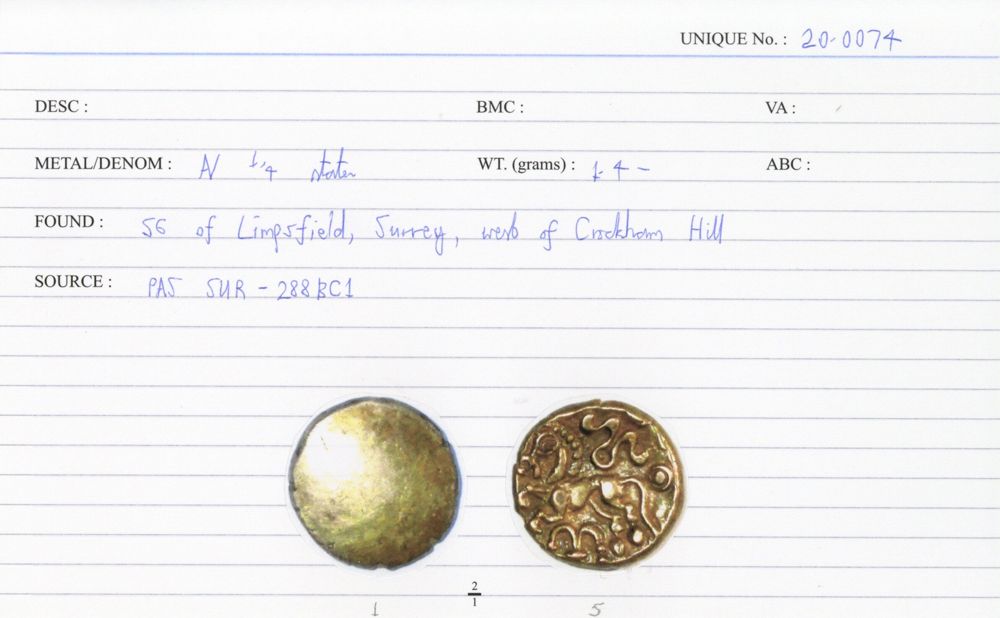 UNIQUE No. : 20-0074
DESC : BMC : VA :
METAL/DENOM : AV 1/4 stater WT. (grams) : 1.4 - ABC :
FOUND : SG of Limpsfield, Surrey, west of Crockham Hill
SOURCE : PAS SUR - 288BC1
2
1
1 5